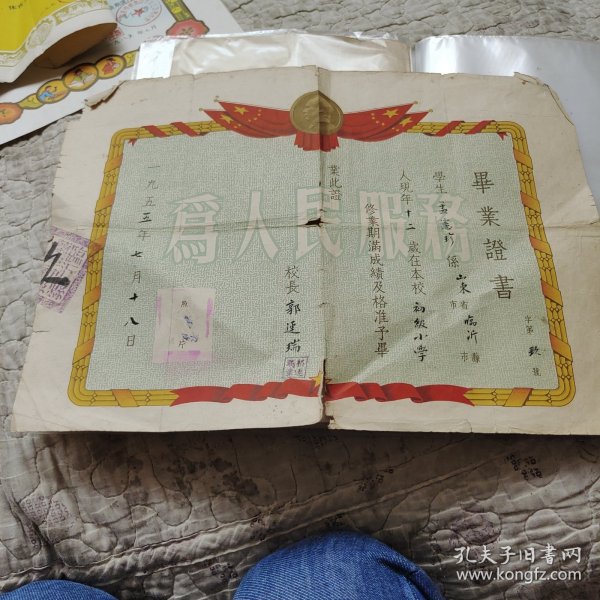 畢業證書
字第 號
學生孟憲珍係山東省臨沂縣
市 市
人現年十二歲在本校初級小學
修業期滿成績及格准予畢
業此證
校長 郭連瑞
一九五五年七月十八日
為人民服務
孔夫子旧书网
www.kongfz.com